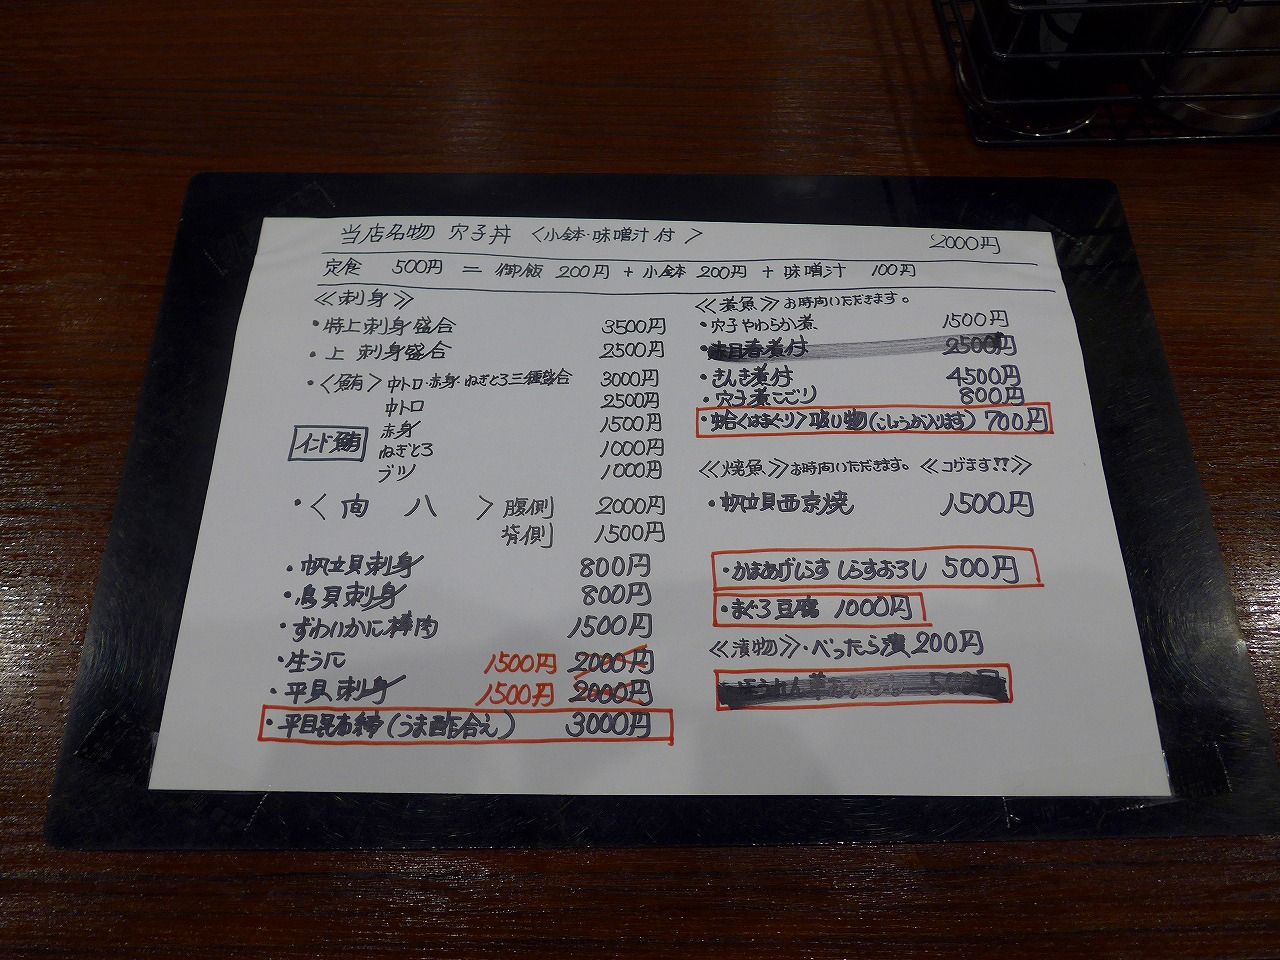 当店名物 穴子丼 〈小鉢・味噌汁付〉 2000円
定食 500円 = 御飯 200円 + 小鉢 200円 + 味噌汁 100円
≪刺身≫
・特上刺身盛合 3500円
・上 刺身盛合 2500円
・〈鮪〉中トロ・赤身・ねぎとろ三種盛合 3000円
中トロ 2500円
赤身 1500円
インド鮪
ねぎとろ 1000円
ブツ 1000円
・〈 向 八 〉 腹側 2000円
背側 1500円
・帆立貝刺身 800円
・鳥貝刺身 800円
・ずわいかに棒肉 1500円
・生うに 1500円 2000円
・平貝刺身 1500円 2000円
・平目昆布締(うま酢合え) 3000円
≪煮魚≫お時間いただきます。
・穴子やわらか煮 1500円
煮付 2500円
・きんき煮付 4500円
・穴子煮こごり 800円
・蛤〈はまぐり〉吸い物(こしょうが入ります) 700円
≪焼魚≫お時間いただきます。≪コゲます!!≫
・帆立貝西京焼 1500円
・かまあげしらす しらすおろし 500円
・まぐろ豆腐 1000円
≪漬物≫・べったら漬 200円
ほうれん草 500円